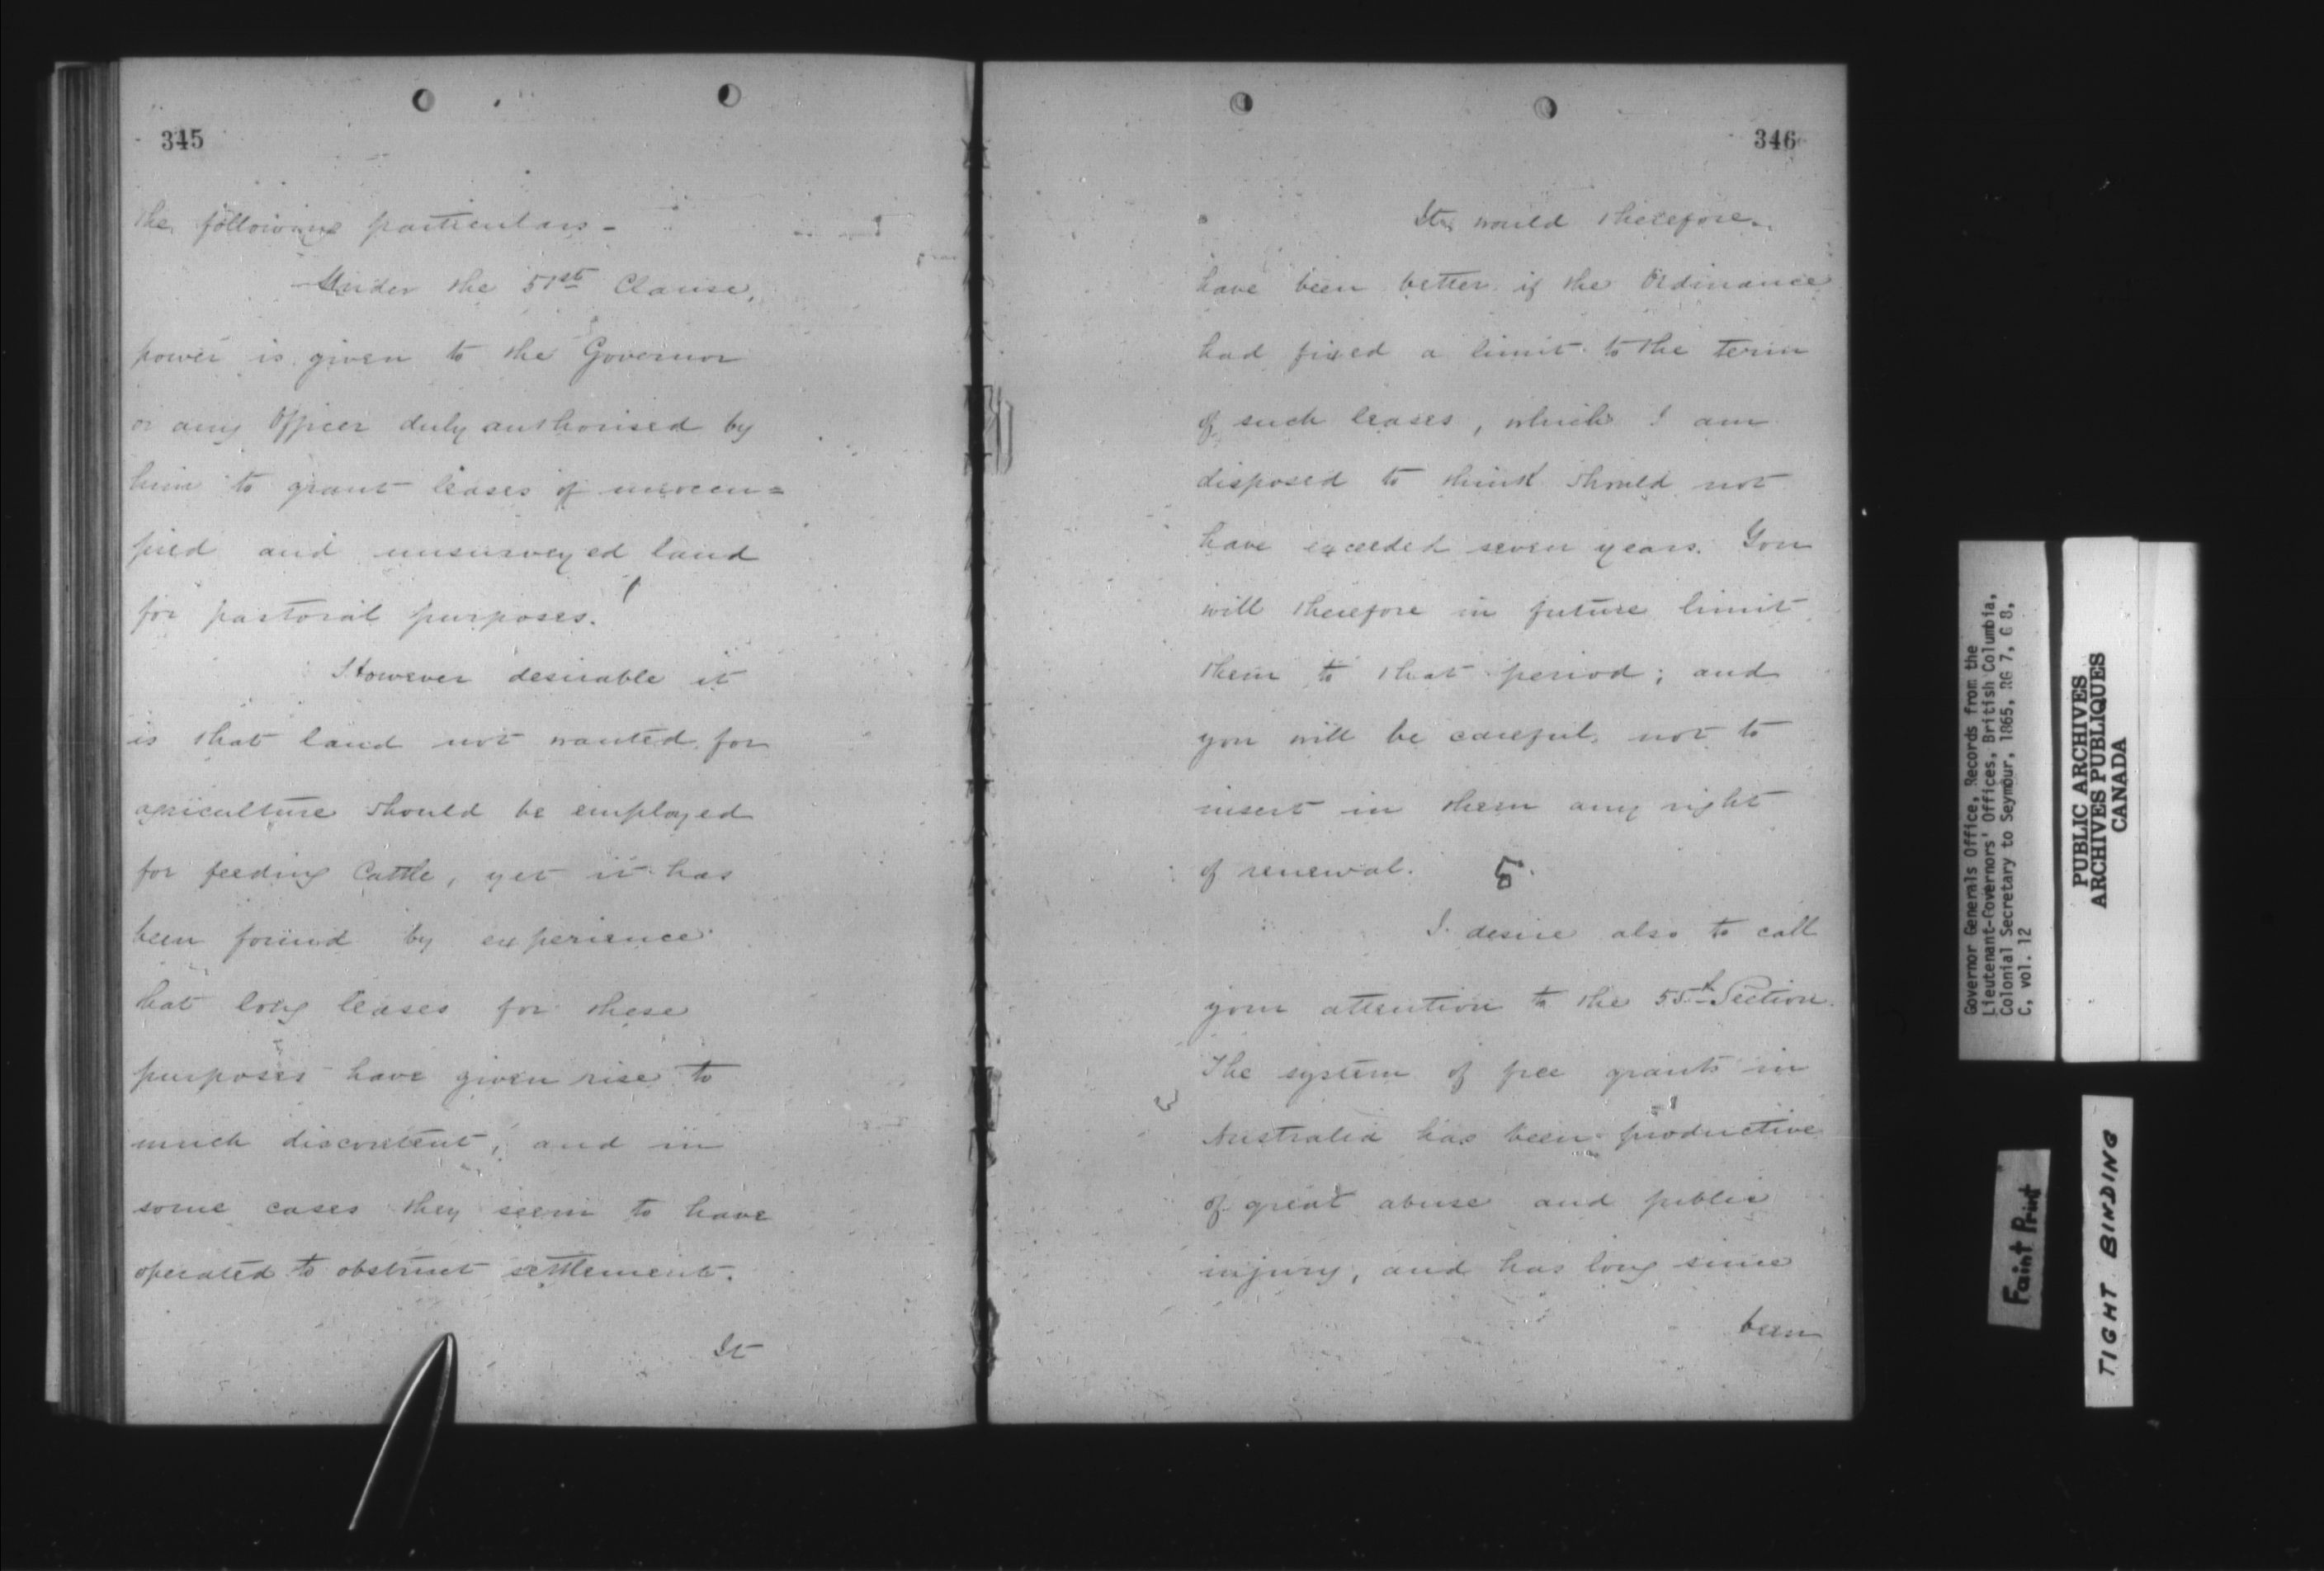 345
the following particulars -
Under the 51st Clause,
power is given to the Governor
or any Officer duly authorised by
him to grant leases of unoccu=
pied and unsurveyed land
for pastoral purposes.
However desirable it
is that land not wanted for
agriculture should be employed
for feeding Cattle, yet it has
been found by experience
that long leases for these
purposes have given rise to
much discontent, and in
some cases they seem to have
operated to obstruct settlement.
It
346
It would therefore
have been better if the Ordinance
had fixed a limit to the term
of such leases, which I am
disposed to think should not
have exceeded seven years. You
will therefore in future limit
them to that period; and
you will be careful not to
insert in them any right
of renewal. 5.
I desire also to call
your attention to the 55th Section.
The system of free grants in
Australia has been productive
of great abuse and public
injury, and has long since
been
Governor Generals Office, Records from the
Lieutenant-Governors' Offices, British Columbia,
Colonial Secretary to Seymour, 1865, RG 7, G 8,
C, vol. 12
PUBLIC ARCHIVES
ARCHIVES PUBLIQUES
CANADA
Faint Print
TIGHT BINDING